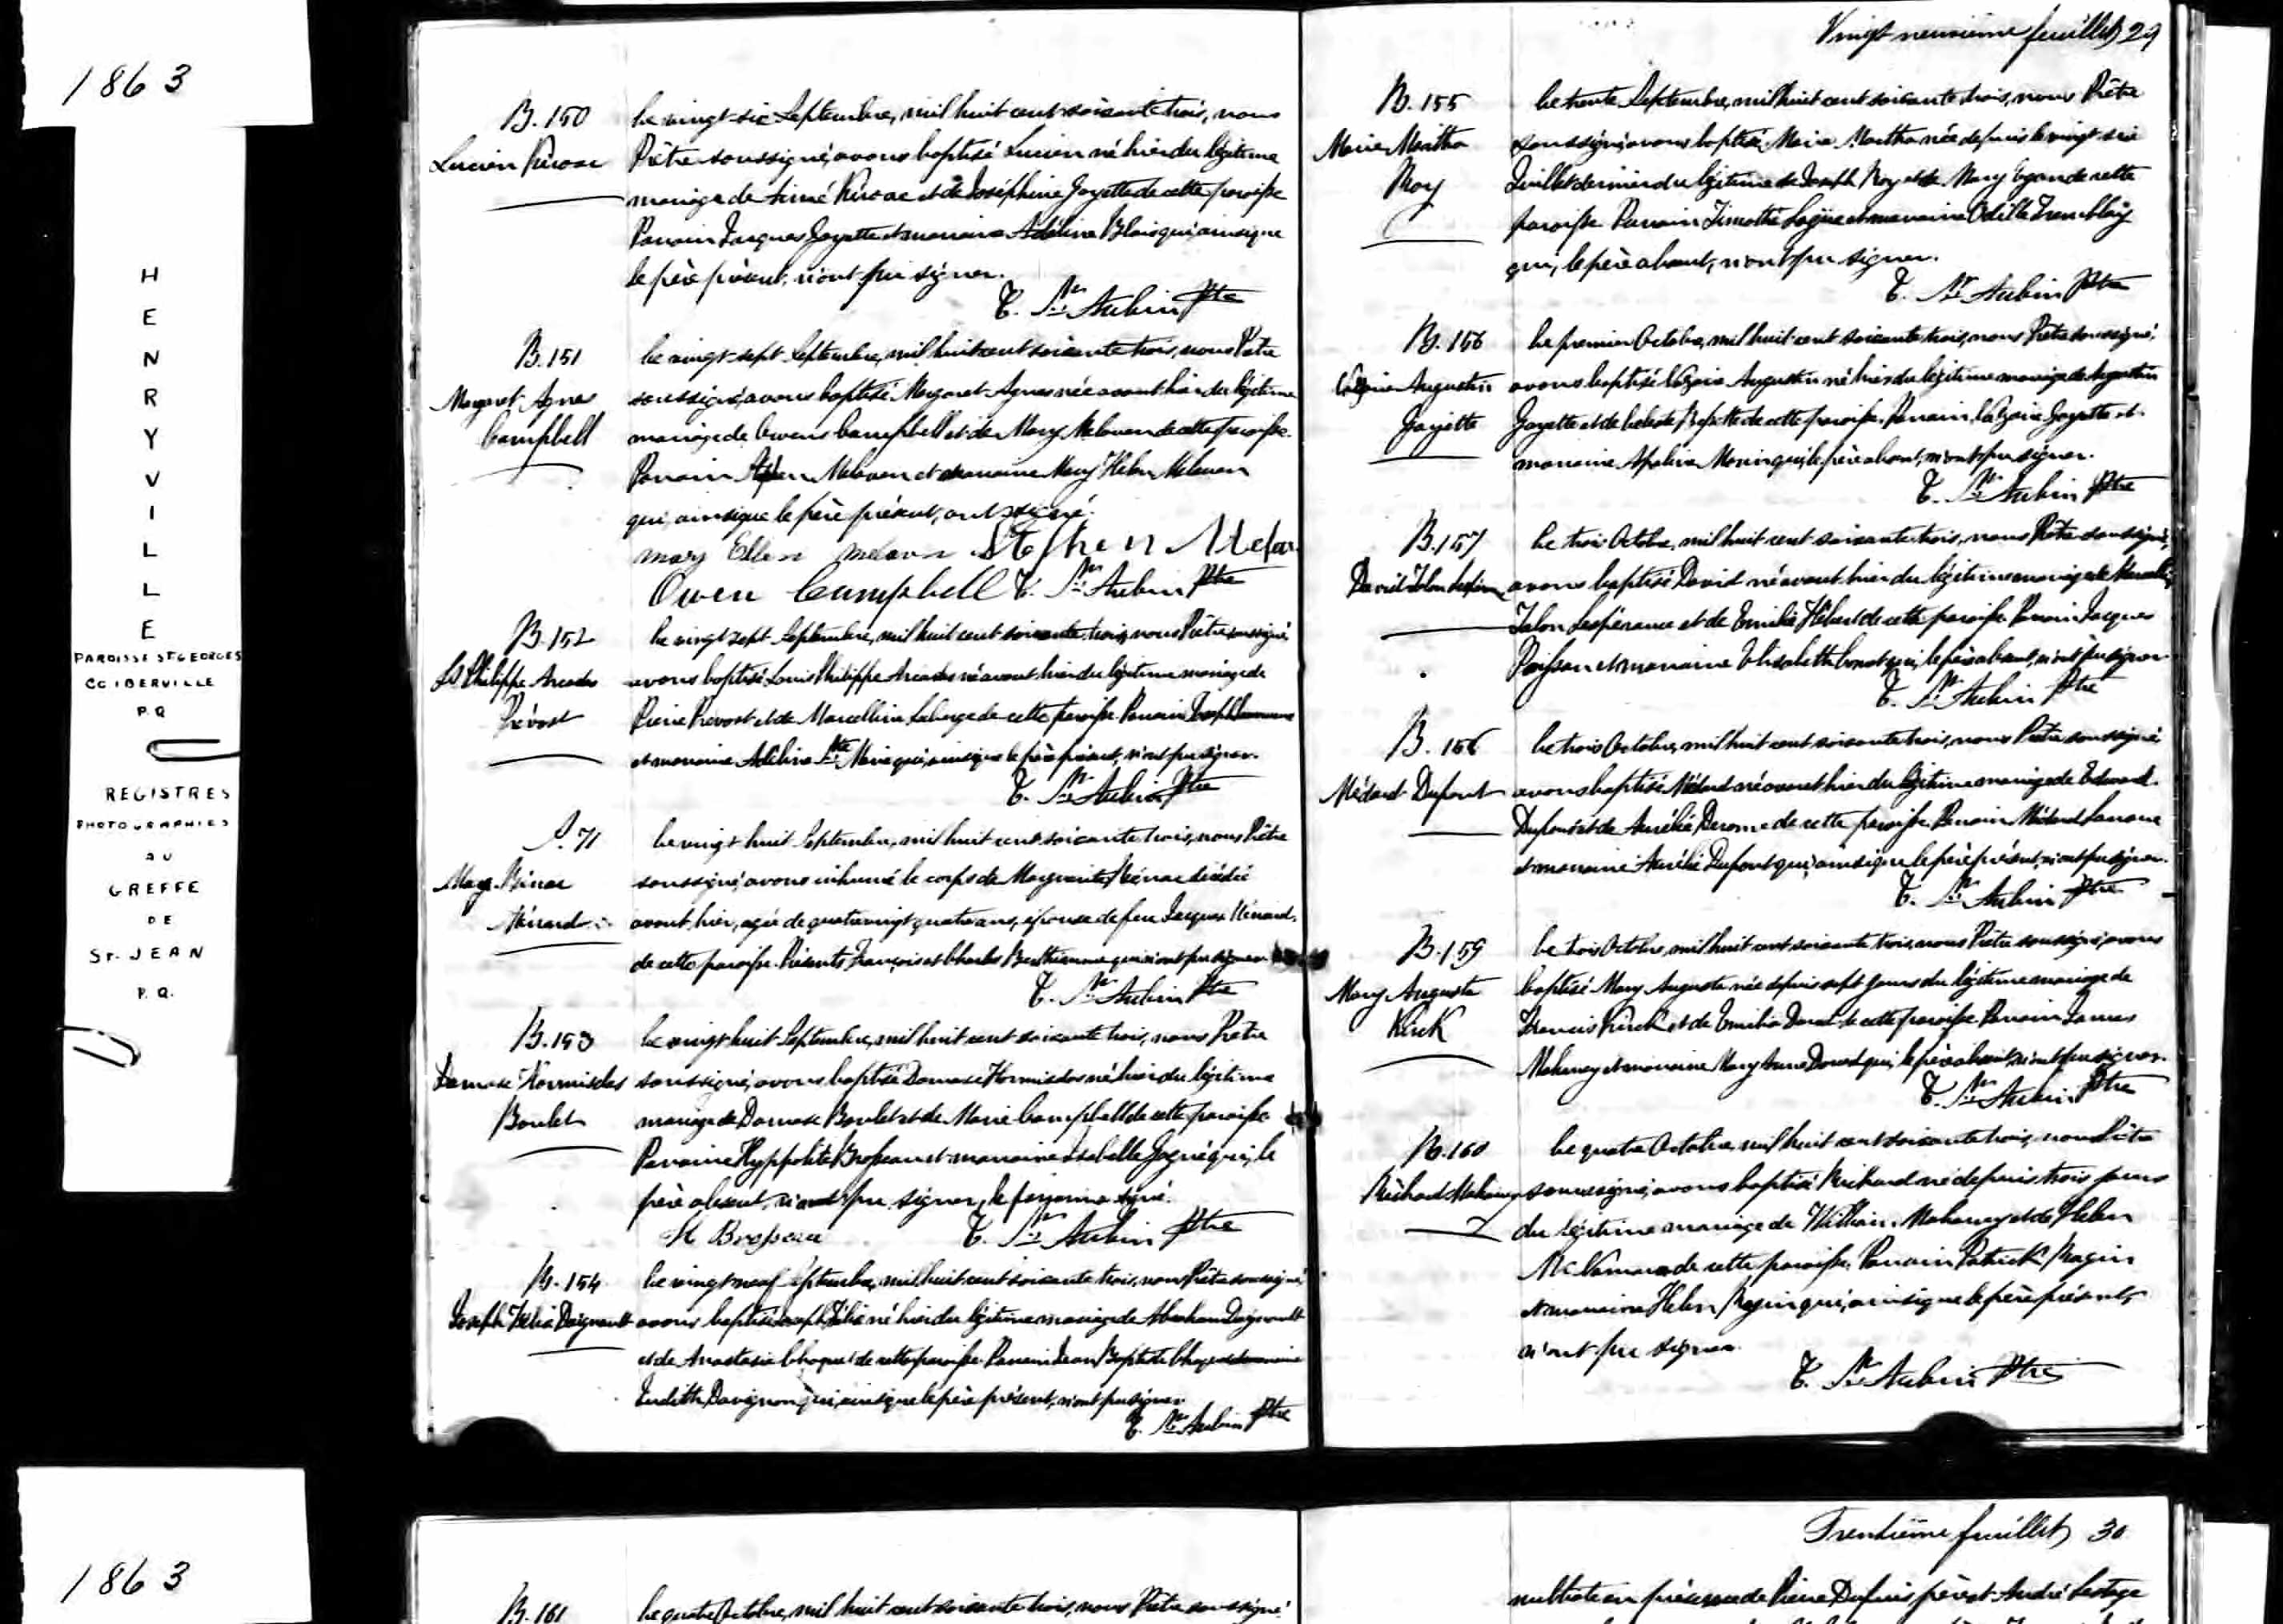 1863
HENRYVILLE
PAROISSE ST GEORGES
CO IBERVILLE
P.Q
REGISTRES
PHOTOGRAPHIES
AU
GREFFE
DE
ST. JEAN
P.Q.
B. 150
Lucien
Le vingt-six Septembre, mil huit cent soixante trois, nous
Prêtre soussigné, avons baptisé Lucien né hier du légitime
mariage de Aimé et de Joséphine Goyette de cette paroisse
Parrain Jacques Goyette et marraine Adéline Blais qui, ainsique
le père présent, n'ont pu signer.
T. St Aubin Ptre
B. 151
Margaret Agnes
Campbell
Le vingt-sept Septembre, mil huit cent soixante trois, nous Prêtre
soussigné, avons baptisé Margaret Agnes née avant hier du légitime
mariage de Owens Campbell et de Mary de cette paroisse.
Parrain et marraine Mary Helen
qui, ainsique le père présent, ont signé.
Mary Ellen Stephen
Owen Campbell T. St Aubin Ptre
B. 152
Ls Philippe Arcade
Prévost
Le vingt sept Septembre, mil huit cent soixante trois, nous Prêtre soussigné,
avons baptisé Louis Philippe né avant hier du légitime mariage de
Pierre Prevost et de Marcelline Laberge de cette paroisse. Parrain Joseph
et marraine Adéline Ste Marie qui, ainsique le père présent, n'ont pu signer.
T. St Aubin Ptre
S. 71
Marg.
Ménard
Le vingt huit Septembre, mil huit cent soixante trois, nous Prêtre
soussigné, avons inhumé le corps de Marguerite décédée
avant hier, agée de quatrevingt quatre ans, épouse de feu Jacques Ménard,
de cette paroisse. Présents François et Charles Berthiaume qui n'ont pu signer
T. St Aubin Ptre
B. 153
Damase Hormisdas
Boulet
Le vingt huit Septembre, mil huit cent soixante trois, nous Prêtre
soussigné, avons baptisé Damase Hormisdas né hier du légitime
mariage de Damase Boulet et de Marie Campbell de cette paroisse
Parrain Hyppolite Brosseau et marraine Isabelle qui, le
père absent, n'ont pu signer, le parrain a signé.
H Brosseau T. St Aubin Ptre
B. 154
Joseph Félix Daigneault
Le vingt neuf Septembre, mil huit cent soixante trois, nous Prêtre soussigné
avons baptisé Joseph Félix né hier du légitime mariage de Abraham Daigneault
et de Anastasie de cette paroisse. Parrain Jean Baptiste
Judith Davignon qui, ainsique le père présent, n'ont pu signer
T. St Aubin Ptre
Vingt neuvième feuillet 29
B. 155
Marie Martha
Roy
Le trente Septembre, mil huit cent soixante trois, nous Prêtre
soussigné, avons baptisé Marie Martha née depuis le vingt-six
Juillet dernier du légitime de Joseph Roy et de Mary Egan de cette
paroisse Parrain Timothé et marraine Odille Tremblay
qui, le père absent, n'ont pu signer.
T. St Aubin Ptre
B. 156
Augustin
Goyette
Le premier Octobre, mil huit cent soixante trois, nous Prêtre soussigné,
avons baptisé Augustin né hier du légitime mariage de Augustin
Goyette et de Celeste de cette paroisse. Parrain Goyette et
marraine Morin qui, le père absent, n'ont pu signer.
T. St Aubin Ptre
B. 157
David Jolon
Le trois Octobre, mil huit cent soixante trois, nous Prêtre soussigné,
avons baptisé David né avant hier du légitime mariage de
Lespérance et de Emilie Hébert de cette paroisse Parrain Jacques
Poissan et marraine Elisabeth qui, le père absent, n'ont pu signer
T. St Aubin Ptre
B. 158
Médard Dupont
Le trois Octobre, mil huit cent soixante trois, nous Prêtre soussigné,
avons baptisé Médard né avant hier du légitime mariage de Edouard
Dupont et de Aurélie Derome de cette paroisse. Parrain Médard
et marraine Aurélie Dupont qui, ainsique le père présent, n'ont pu signer.
T. St Aubin Ptre
B. 159
Mary Augusta
Kirk
Le trois Octobre, mil huit cent soixante trois, nous Prêtre soussigné, avons
baptisé Mary Augusta née depuis sept jours du légitime mariage de
Francis Kirck et de Emilia de cette paroisse Parrain James
Mahoney et marraine Mary Anne qui, le père absent, n'ont pu signer.
T. St Aubin Ptre
B. 160
Richard Mahoney
Le quatre Octobre, mil huit cent soixante trois, nous Prêtre
soussigné, avons baptisé Richard né depuis trois jours
du légitime mariage de William Mahoney et de Helen
McNamara de cette paroisse, Parrain Patrick Magin
et marraine Helen Magin qui, ainsique le père présent,
n'ont pu signer.
T. St Aubin Ptre
1863
B. 161
Le quatre Octobre, mil huit cent soixante trois, nous Prêtre soussigné
Trentième feuillet 30
en présence de Pierre Dupuis père et André Lestage